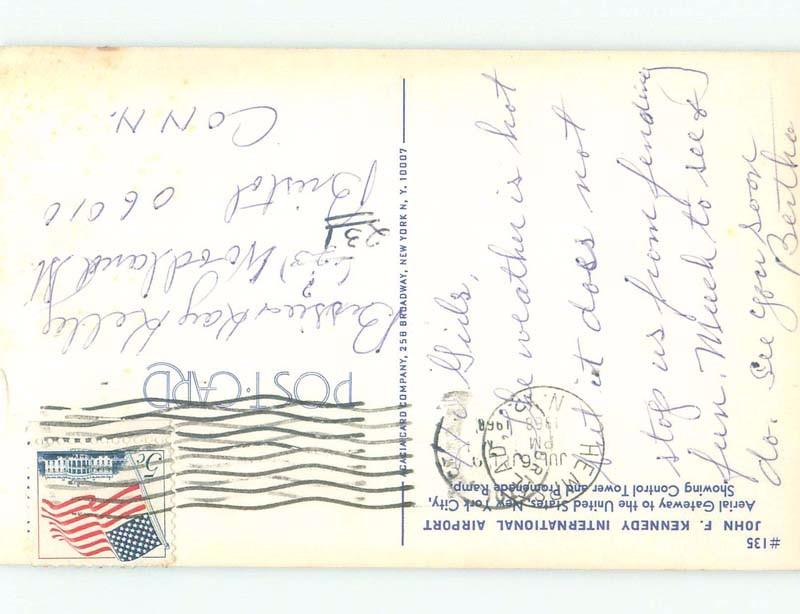 #135
JOHN F. KENNEDY INTERNATIONAL AIRPORT
Aerial Gateway to the United States, New York City,
Showing Control Tower and Promenade Ramp.
Hi Girls,
The weather is hot
but it does not
stop us from fending
fun. Much to see &
do. See you soon
Bertha
ACACIA CARD COMPANY, 258 BROADWAY, NEW YORK N, Y. 10007
POST CARD
5c
HEMPSTEAD
PM
1968
N.
Bessie & Kay Kelly
Woodland St
231
Bristol 06010
CONN.